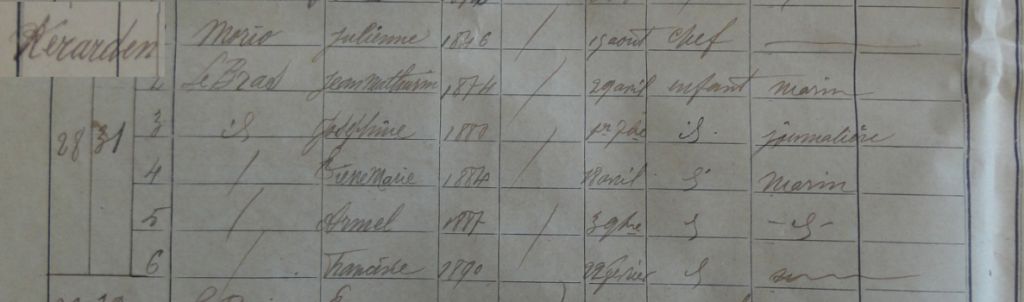 Kerarden Morio Julienne 1846 / 15 août chef
2 Le Bras Jean Mathurin 1874 / 29 avril enfant marin
28 31 3 id Joséphine 1880 / 1er 7bre id. journalière
4 / Pierre Marie 1884 / 18 avril id marin
5 / Armel 1887 / 3 9bre id id
6 / 1890 / id